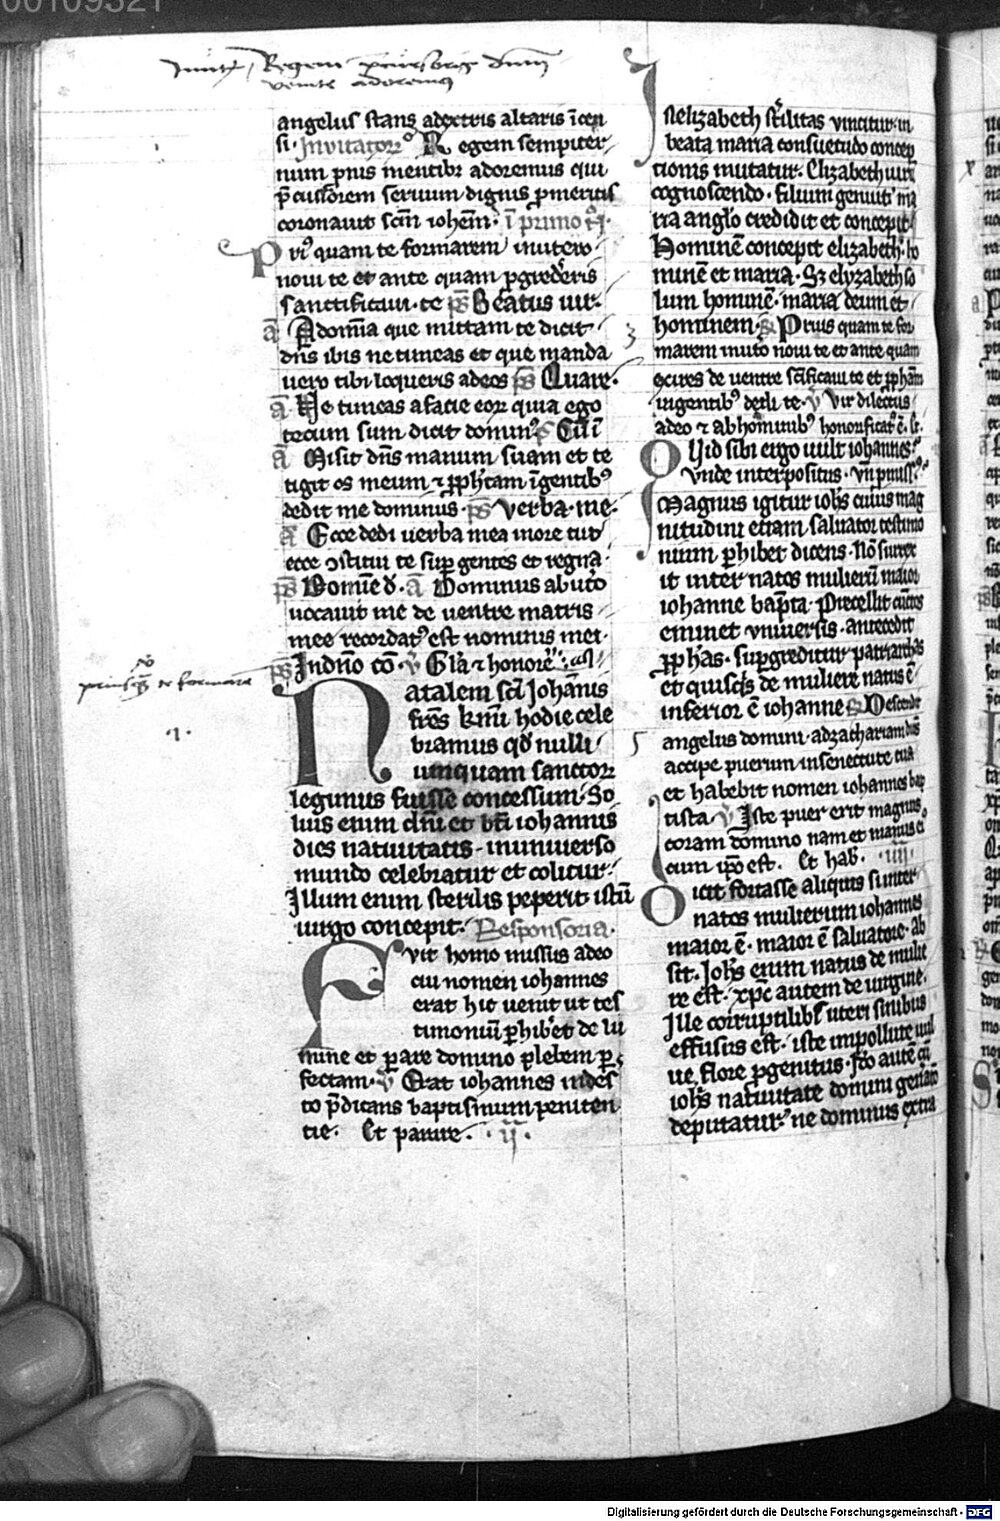 00109321
Regem precursoris dominum
venite adoremus
angelus stans a dextris altaris īcen
si. Invitatoꝝ Regem sempiter
num pnis mentibꝫ adoremus qui
p̄cussorem seruum dignis pmeritis
coronauit scm̄ iohem̄. ī primo
Priusquam te formarem in utero
noui te et ante quam pgredēris
sanctificaui te ps̄ Beatus uir.
a Ad om̄ia que mittam te dicit
dn̄s ibis ne timeas et que manda
uero tibi loqueris ad eos ps̄ Quare.
a Ne timeas a facie eoꝝ quia ego
tecum sum dicit dominꝰ ps̄ Cū ī
a Misit dn̄s manum suam et te
tigit os meum ⁊ pphetam ī gentibꝰ
dedit me dominus. ps̄ Verba me.
a Ecce dedi uerba mea in ore tuo
ecce ꝯstitui te sup gentes et regna.
ps̄ Domine d. a Dominus ab uto
uocauit me de uentre matris
mee recordatꝰ est nominis mei.
ps̄ In dn̄o cō. v Glā ⁊ honore
priusquam te formarem
.1.
Natalem sc̄i Johannis
fr̄es k̄mi hodie cele
bramus qd nulli
umquam sanctoꝝ
legimus fuisse concessum. So
lius enim dn̄i et bti iohannis
dies natiuitatis in uniuerso
mundo celebratur et colitur.
Illum enim sterilis peperit istū
uirgo concepit. Responsoria.
Fvit homo missus a deo
cui nomen iohannes
erat hic uenit ut tes
timoniū phiberet de lu
mine et pare domino plebem p
fectam. v Erat iohannes in des
to p̄dicans baptismum peniten
tie. Et parare. .ij.
In elizabeth st̄ilitas vincitur in
beata maria consuetudo concep
tionis mutatur. Elizabeth uirū
cognoscendo filium genuit. ma
ria anglo credidit et concepit.
Hominē concepit elizabeth. ho
minē et maria. Sꝫ elyzabeth so
lum hominē. maria deum et
hominem. R Prius quam te for
marem in uto noui te et ante quam
exires de uentre scīficaui te et pphām
in gentibꝰ dedi te. v Vir dilectus
a deo ⁊ ab hominibꝰ honorificatꝰ ē.
Quid sibi ergo uult iohannes?
Vnde interpositus. vn̄ p̄miss.
Magnus igitur ioh̄s cuius mag
nitudini etiam saluator testimo
nium phibet dicens. Nō surrex
it inter natos mulierū maior
iohanne bap̄ta. Precellit cūctos
eminet vniuersis. antecedit
pphās. supgreditur patriarchas
et quisqis de muliere natus ē
inferior ē iohanne R Descendit
angelus domini ad zachariam dicens
accipe puerum in senectute tua
et habebit nomen iohannes bap
tista. v Iste puer erit magnus
coram domino nam et manus ei
cum ipo est. Et hab. .iij.
Dicit fortasse aliquis si inter
natos mulierum iohannes
maior ē. maior ē saluatore. Ab
sit. Ioh̄s enim natus de mulie
re est. xp̄c autem de uirgine.
Ille corruptilibꝰ uteri sinibus
effusus est. iste impollute uul
ue flore pgenitus. Jdo autē cū
ioh̄s natiuitate domini genatō
deputatur. ne dominus extra
Digitalisierung gefördert durch die Deutsche Forschungsgemeinschaft - DFG